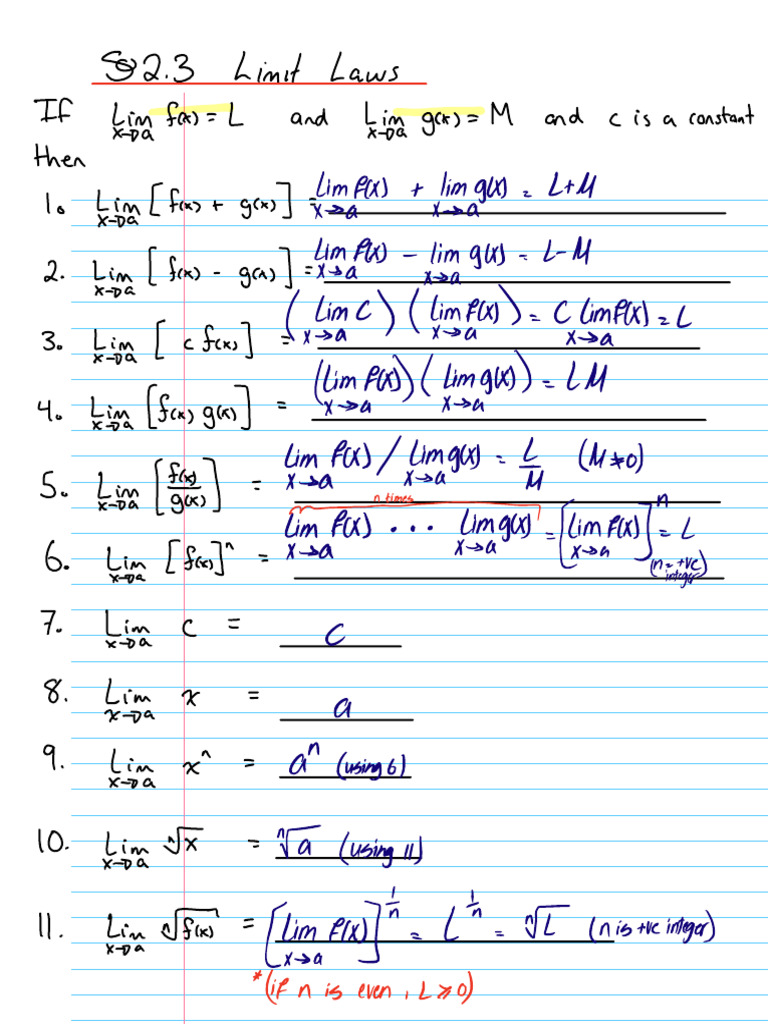 § 2.3 Limit Laws
If Lim x→a f(x) = L and Lim x→a g(x) = M and c is a constant
then
1. Lim x→a [f(x) + g(x)] = Lim x→a f(x) + lim x→a g(x) = L+M
2. Lim x→a [f(x) - g(x)] = Lim x→a f(x) - lim x→a g(x) = L-M
3. Lim x→a [c f(x)] = (Lim x→a C)(Lim x→a f(x)) = C Lim x→a f(x) = L
4. Lim x→a [f(x) g(x)] = (Lim x→a f(x))(Lim x→a g(x)) = LM
5. Lim x→a [f(x)/g(x)] = Lim x→a f(x) / Lim x→a g(x) = L/M (M≠0)
n times
6. Lim x→a [f(x)]ⁿ = Lim x→a f(x) ... Lim x→a g(x) = [Lim x→a f(x)]ⁿ = L (n = +ve integer)
7. Lim x→a c = c
8. Lim x→a x = a
9. Lim x→a xⁿ = aⁿ (using 6)
10. Lim x→a ⁿ√x = ⁿ√a (using 11)
11. Lim x→a ⁿ√f(x) = [Lim x→a f(x)]^(1/n) = L^(1/n) = ⁿ√L (n is +ve integer)
*(if n is even, L ≥ 0)